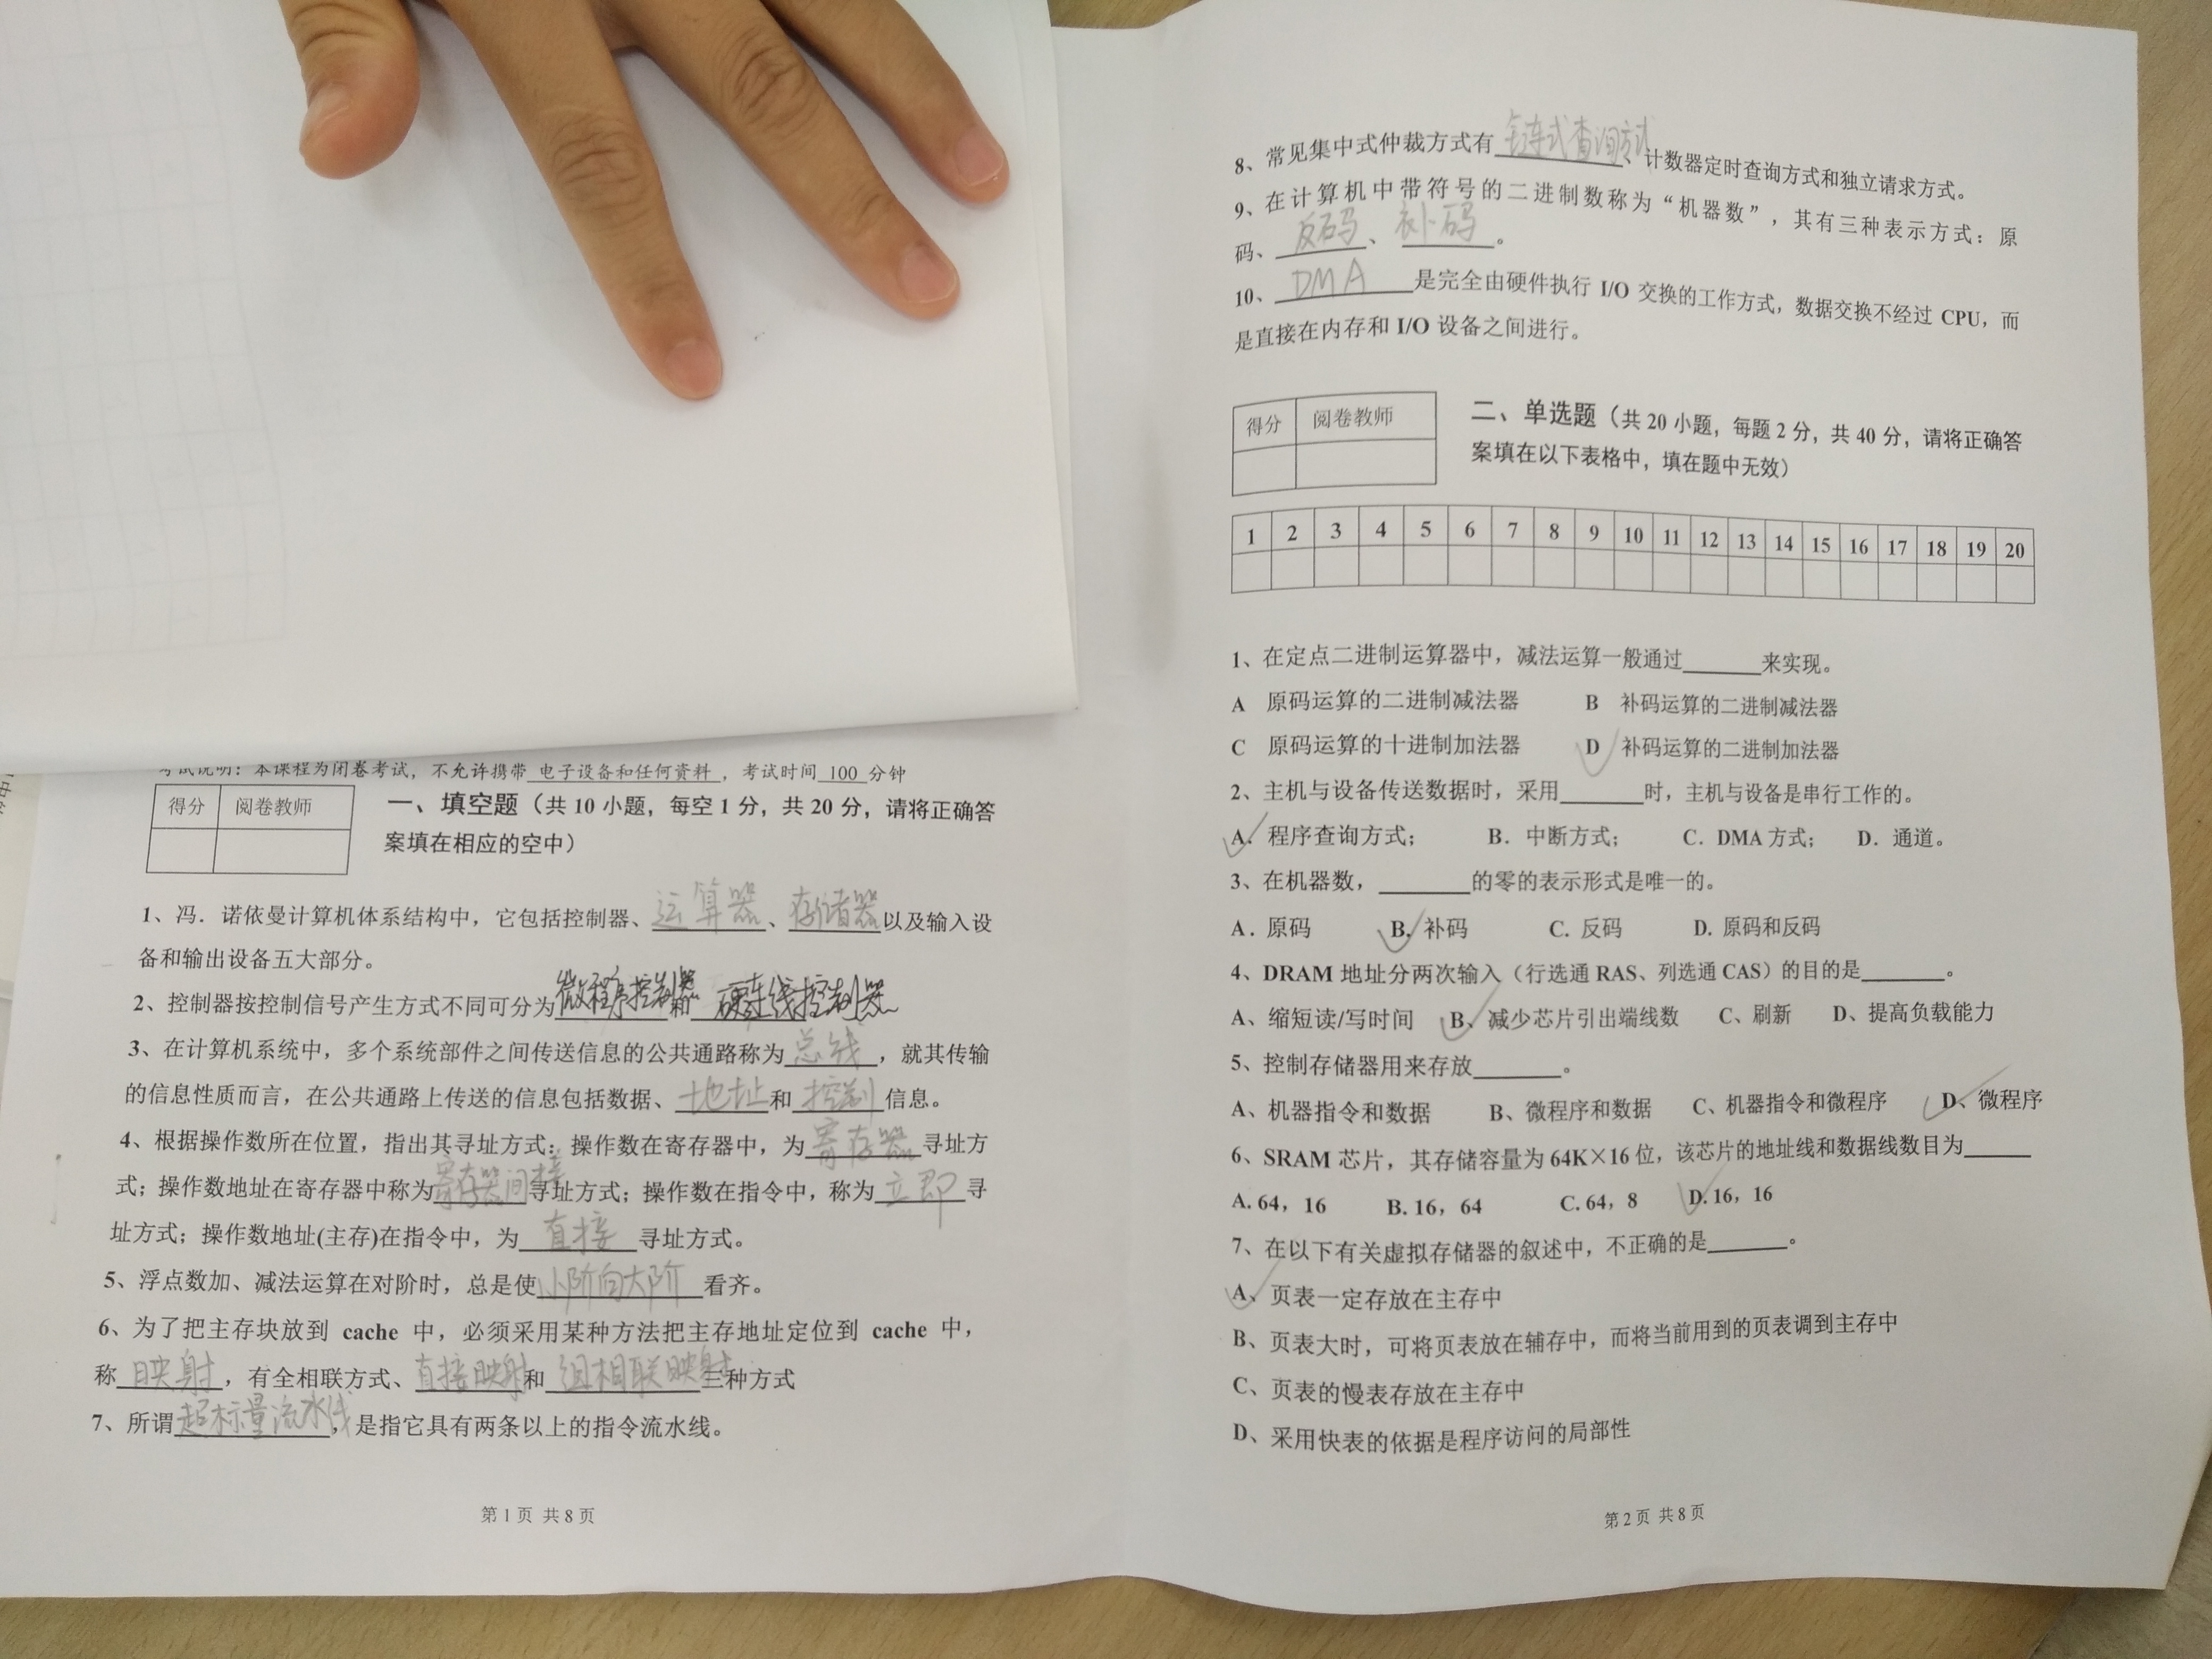 考试说明：本课程为闭卷考试，不允许携带 电子设备和任何资料 ，考试时间 100 分钟
得分 阅卷教师
一、填空题（共 10 小题，每空 1 分，共 20 分，请将正确答
案填在相应的空中）
1、冯．诺依曼计算机体系结构中，它包括控制器、运算器、存储器以及输入设
备和输出设备五大部分。
2、控制器按控制信号产生方式不同可分为微程序控制器和硬连线控制器
3、在计算机系统中，多个系统部件之间传送信息的公共通路称为总线，就其传输
的信息性质而言，在公共通路上传送的信息包括数据、地址和控制信息。
4、根据操作数所在位置，指出其寻址方式：操作数在寄存器中，为寄存器寻址方
式；操作数地址在寄存器中称为寄存器间接寻址方式；操作数在指令中，称为立即寻
址方式；操作数地址(主存)在指令中，为直接寻址方式。
5、浮点数加、减法运算在对阶时，总是使小阶向大阶看齐。
6、为了把主存块放到 cache 中，必须采用某种方法把主存地址定位到 cache 中，
称映射，有全相联方式、直接映射和组相联映射三种方式
7、所谓超标量流水线，是指它具有两条以上的指令流水线。
第 1 页 共 8 页
8、常见集中式仲裁方式有链式查询方式、计数器定时查询方式和独立请求方式。
9、在计算机中带符号的二进制数称为“机器数”，其有三种表示方式：原
码、反码、补码。
10、DMA是完全由硬件执行 I/O 交换的工作方式，数据交换不经过 CPU，而
是直接在内存和 I/O 设备之间进行。
得分 阅卷教师
二、单选题（共 20 小题，每题 2 分，共 40 分，请将正确答
案填在以下表格中，填在题中无效）
1 2 3 4 5 6 7 8 9 10 11 12 13 14 15 16 17 18 19 20
1、在定点二进制运算器中，减法运算一般通过______来实现。
A 原码运算的二进制减法器 B 补码运算的二进制减法器
C 原码运算的十进制加法器 D 补码运算的二进制加法器
2、主机与设备传送数据时，采用______时，主机与设备是串行工作的。
A．程序查询方式； B．中断方式； C．DMA 方式； D．通道。
3、在机器数，______的零的表示形式是唯一的。
A．原码 B. 补码 C. 反码 D. 原码和反码
4、DRAM 地址分两次输入（行选通 RAS、列选通 CAS）的目的是______。
A、缩短读/写时间 B、减少芯片引出端线数 C、刷新 D、提高负载能力
5、控制存储器用来存放______。
A、机器指令和数据 B、微程序和数据 C、机器指令和微程序 D、微程序
6、SRAM 芯片，其存储容量为 64K×16 位，该芯片的地址线和数据线数目为______
A. 64，16 B. 16，64 C. 64，8 D. 16，16
7、在以下有关虚拟存储器的叙述中，不正确的是______。
A、页表一定存放在主存中
B、页表大时，可将页表放在辅存中，而将当前用到的页表调到主存中
C、页表的慢表存放在主存中
D、采用快表的依据是程序访问的局部性
第 2 页 共 8 页